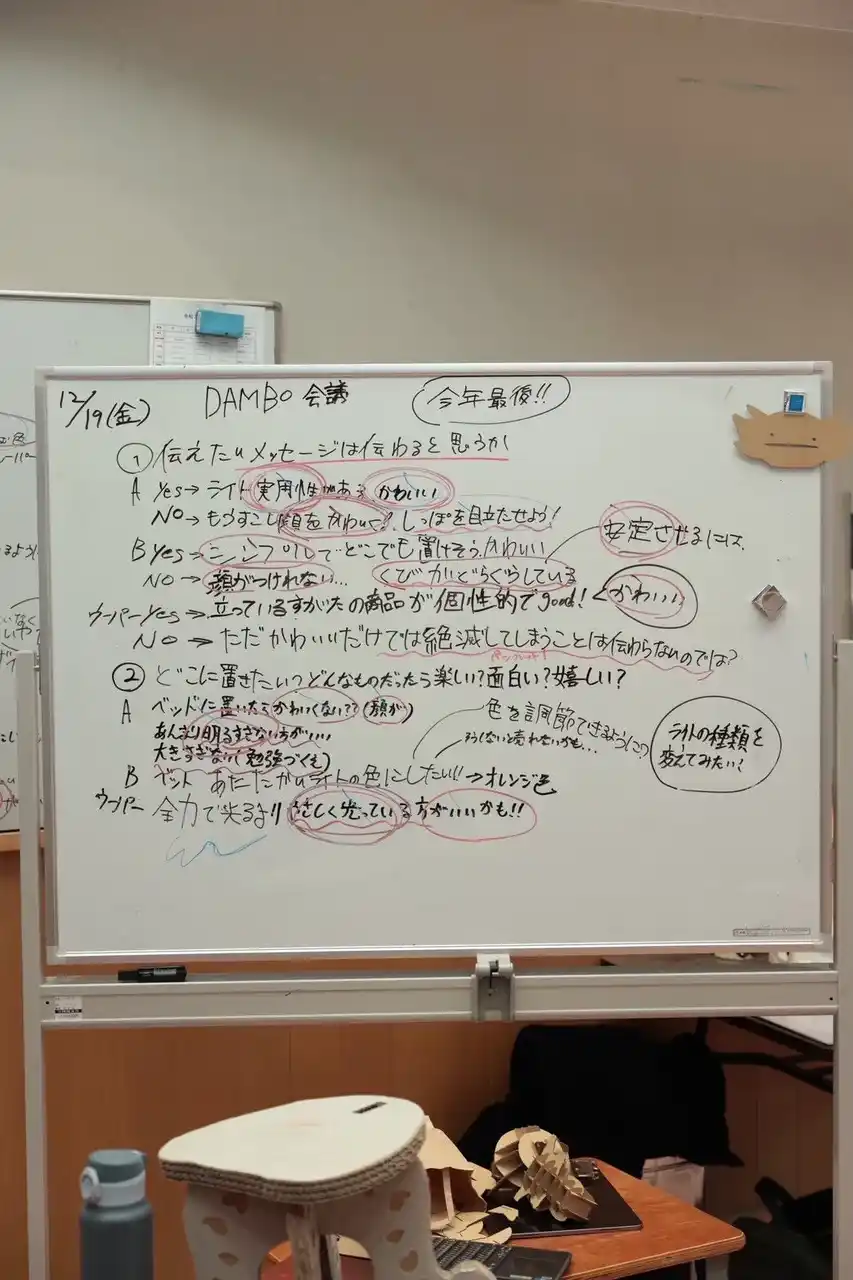 12/19(金) DAMBO 会議 今年最後!!
① 伝えたいメッセージは伝わると思うか
A Yes→ライト実用性がある かわいい
NO→もうすこし顔をかわいく!しっぽを目立たせよう!
B Yes→シンプルで…どこでも置けそう.かわいい
安定させるには、
NO→顔がつけれない… くびがぐらぐらしている
ウーパー Yes→立っているすがたの商品が個性的でgood! かわいい
NO→ただかわいいだけでは絶滅してしまうことは伝わらないのでは?
② どこに置きたい、どんなものだったら楽しい?面白い?嬉しい?
A ベッドに置いたらかわいくない??(顔が)
色を調節できるように??
あんまり明るすぎない方がいい
そうしないと売れないかも…
大きすぎない(勉強づくえ)
ライトの種類を
変えてみたい?
B ベット あたたかいライトの色にしたい!!→オレンジ色
ウーパー 全力で光るより 優しく光っている方がいいかも!!